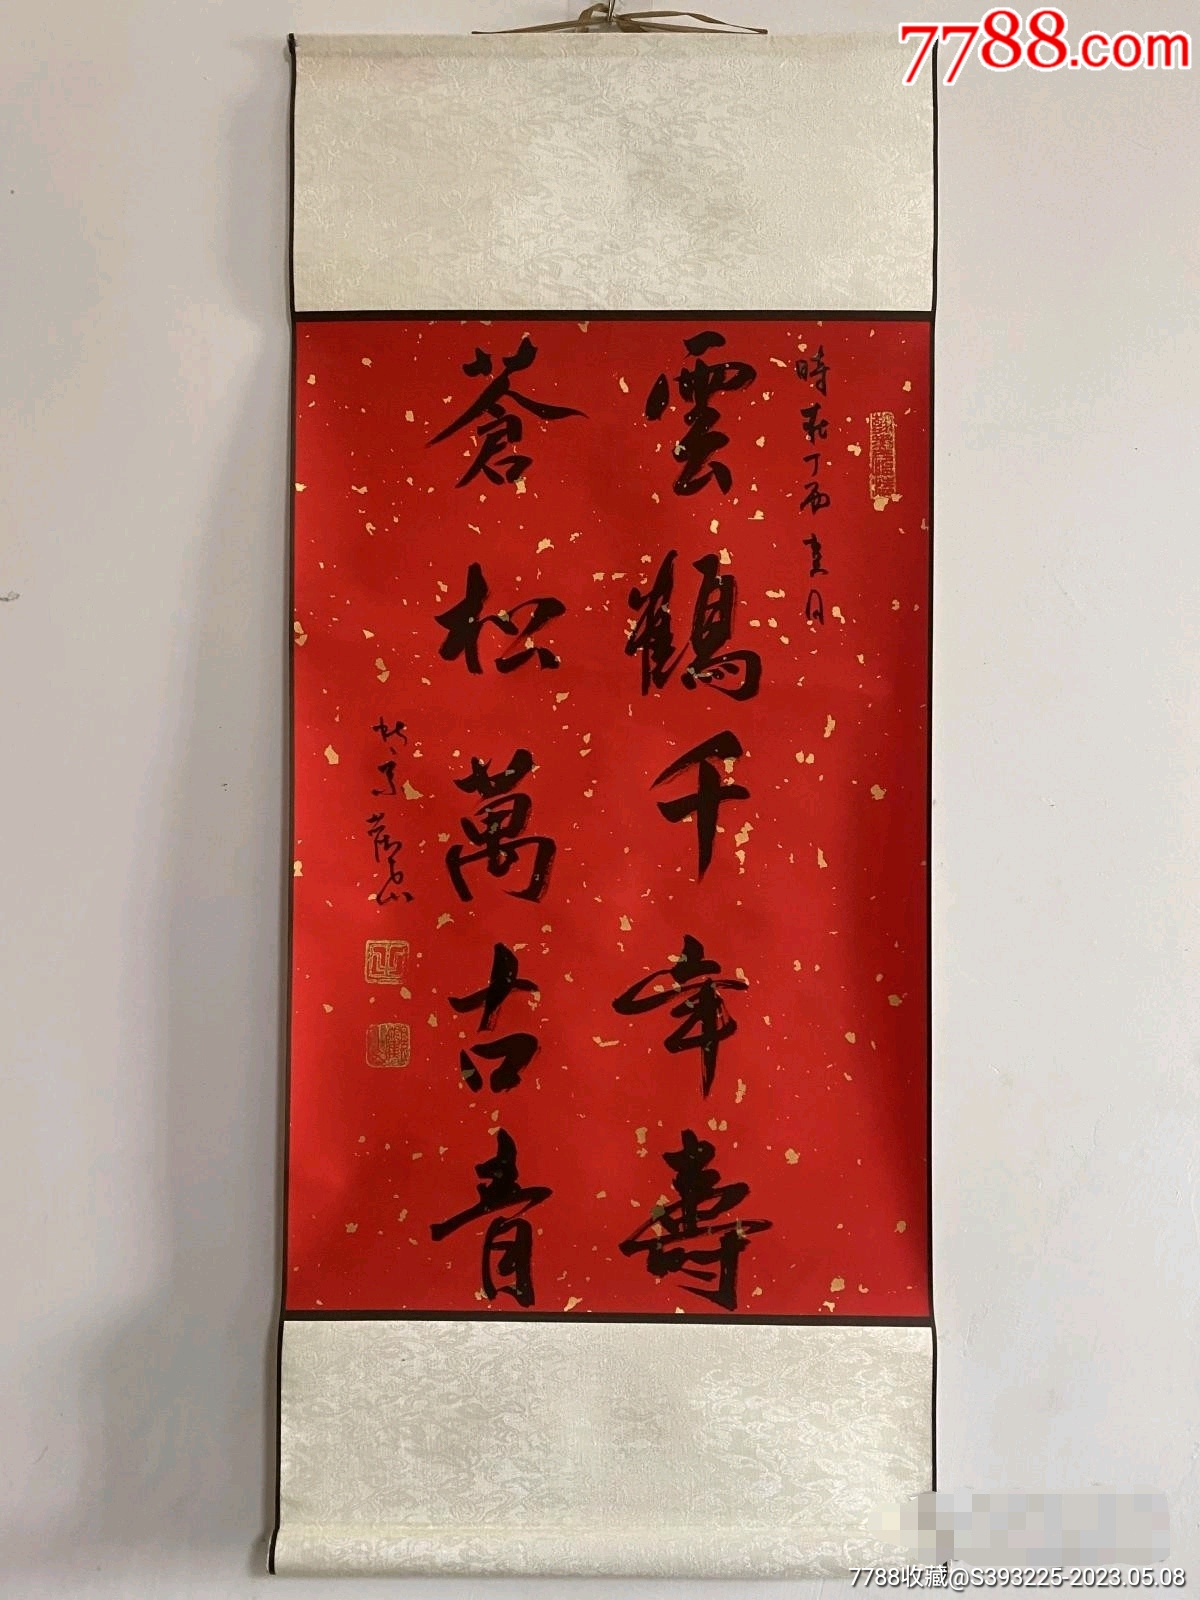 7788.com
時在丁酉夏月
雲鶴千年壽
蒼松萬古青
7788收藏@S393225-2023.05.08